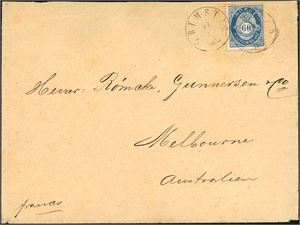 GRIMST
60
Herrer Römcke, Gunnersen & Co
Melbourne
Australien
franco